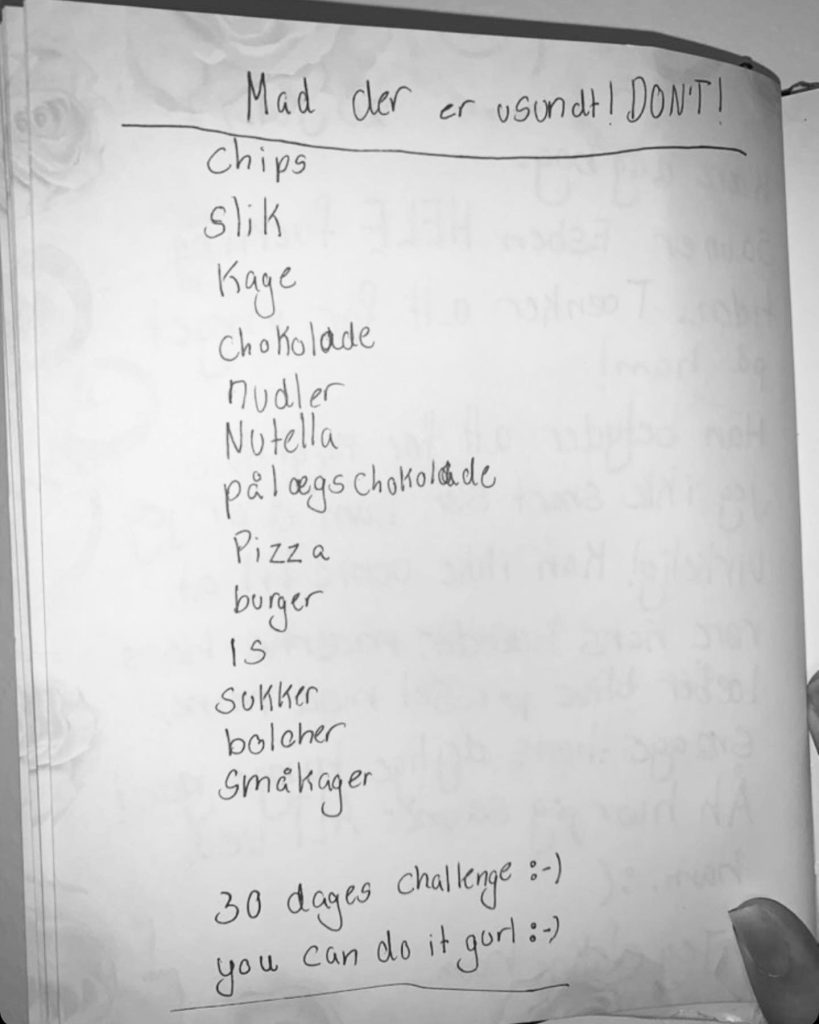 Mad der er usundt! DON'T!
Chips
Slik
Kage
Chokolade
nudler
Nutella
pålægschokolade
Pizza
burger
Is
Sukker
bolcher
Småkager
30 dages challenge :-)
you can do it gurl :-)